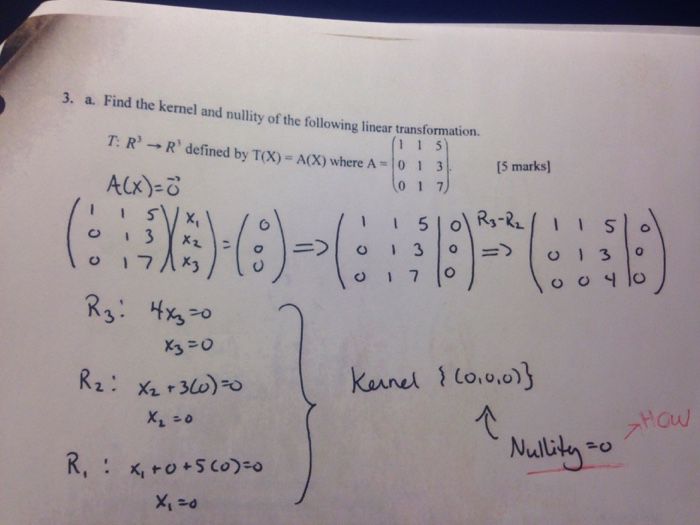 3. a. Find the kernel and nullity of the following linear transformation.
T: R³ → R³ defined by T(X) = A(X) where A = (1 1 5; 0 1 3; 0 1 7) [5 marks]
A(X)=0⃗
(1 1 5; 0 1 3; 0 1 7)(x₁; x₂; x₃) = (0; 0; 0) => (1 1 5 | 0; 0 1 3 | 0; 0 1 7 | 0) R₃-R₂ => (1 1 5 | 0; 0 1 3 | 0; 0 0 4 | 0)
R₃: 4x₃=0
x₃=0
R₂: x₂+3(0)=0
x₂=0
R₁: x₁+0+5(0)=0
x₁=0
Kernel {(0,0,0)}
↑
Nullity=0
→HOW